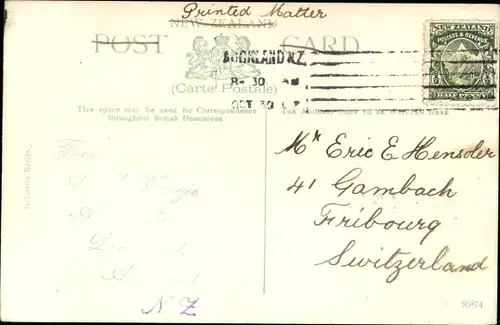 Printed Matter
NEW ZEALAND
POST CARD
(Carte Postale)
AUCKLAND N.Z.
8- 30 AM
OCT 30
NEW ZEALAND
POSTAGE & REVENUE
HALF PENNY
This space may be used for Correspondence
throughout British Dominions
The Address only to be Written Here.
Industria Series.
From
N Z
Mr Eric E Hensder
41 Gambach
Fribourg
Switzerland